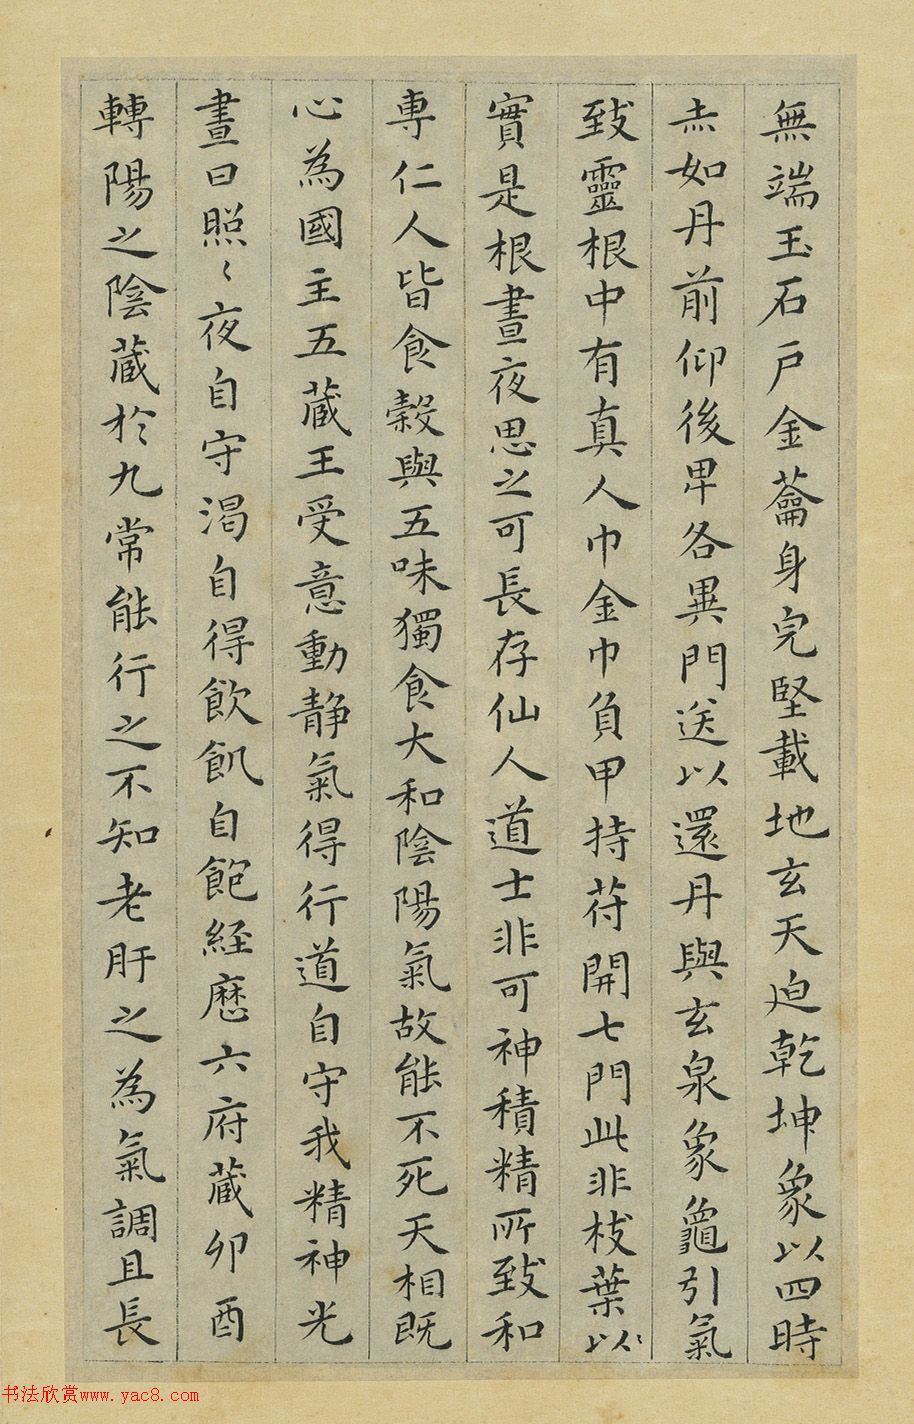 無端玉石戶金蘥身完堅載地玄天迫乾坤象以四時
赤如丹前仰後卑各異門送以還丹與玄泉象龜引氣
致靈根中有真人巾金巾負甲持苻開七門此非枝葉以
實是根晝夜思之可長存仙人道士非可神積精所致和
專仁人皆食穀與五味獨食大和陰陽氣故能不死天相既
心為國主五蔵王受意動静氣得行道自守我精神光
晝日照〻夜自守渴自得飲飢自飽経歴六府蔵卯酉
轉陽之陰蔵於九常能行之不知老肝之為氣調且長
书法欣赏www.yac8.com